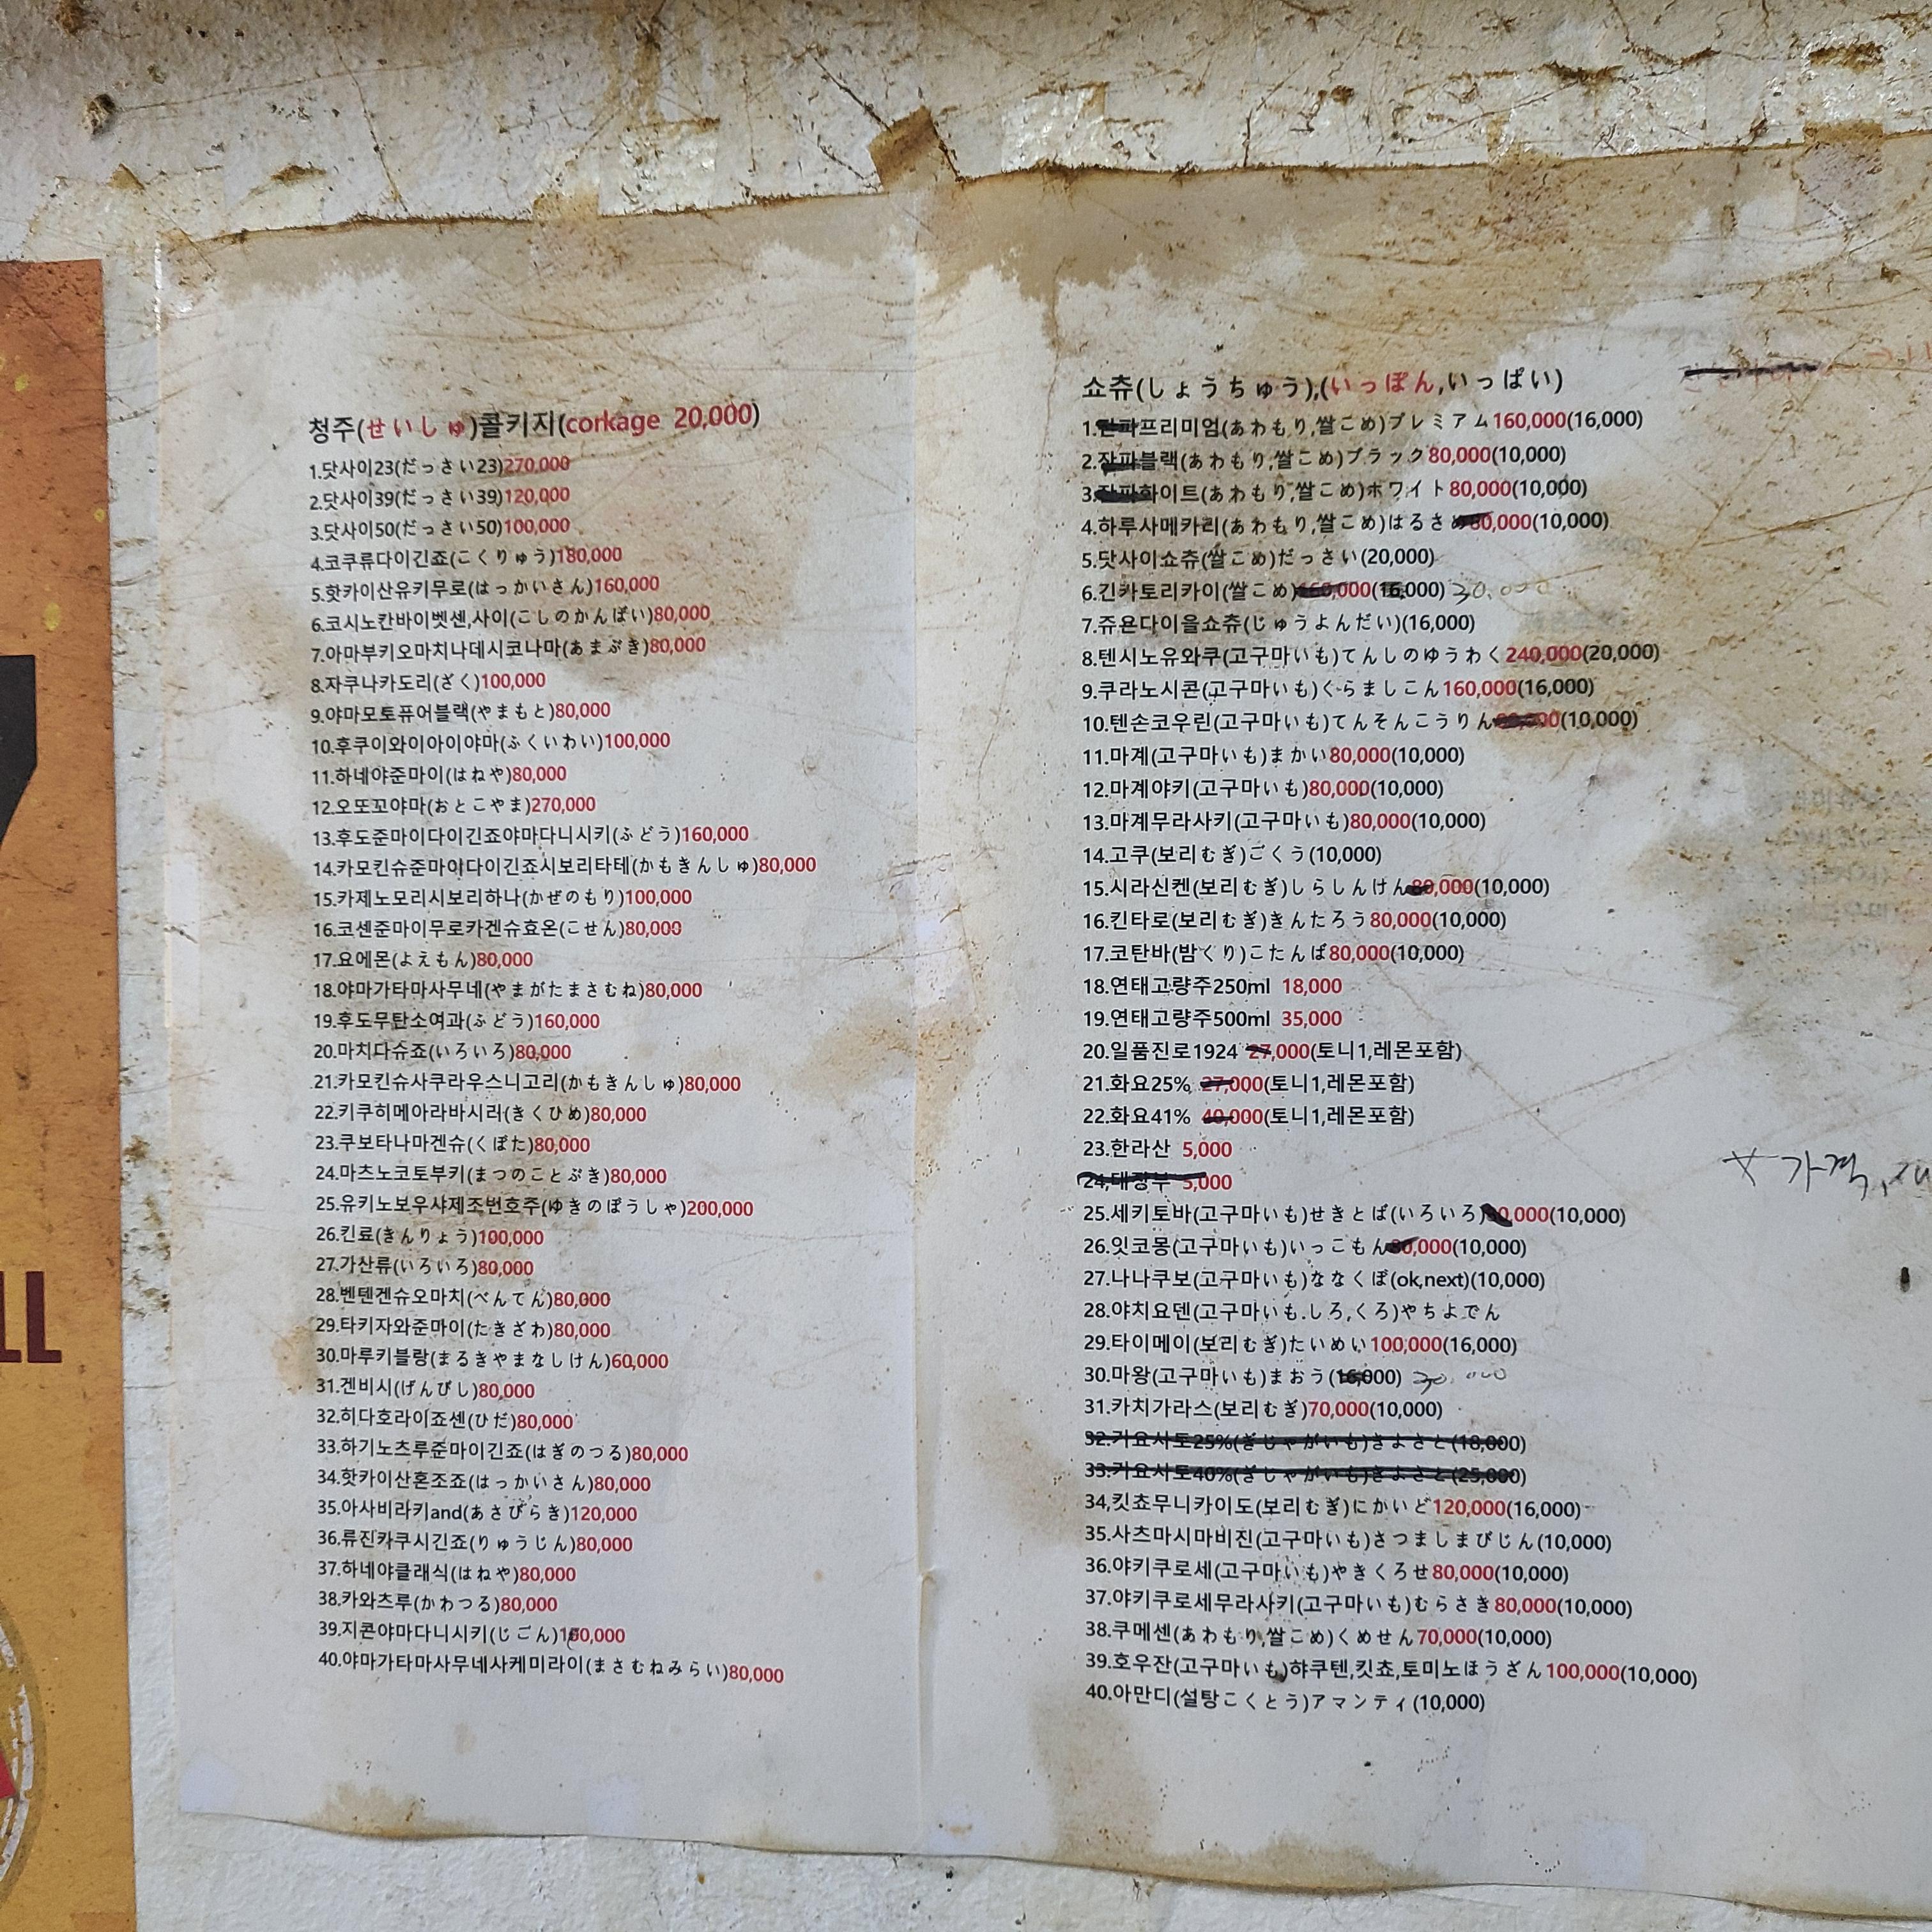 청주(せいしゅ)콜키지(corkage 20,000)
1.닷사이23(だっさい23)270,000
2.닷사이39(だっさい39)120,000
3.닷사이50(だっさい50)100,000
4.코쿠류다이긴죠(こくりゅう)180,000
5.핫카이산유키무로(はっかいさん)160,000
6.코시노칸바이벳센,사이(こしのかんばい)80,000
7.아마부키오마치나데시코나마(あまぶき)80,000
8.자쿠나카도리(ざく)100,000
9.야마모토퓨어블랙(やまもと)80,000
10.후쿠이와이아이야마(ふくいわい)100,000
11.하네야준마이(はねや)80,000
12.오또꼬야마(おとこやま)270,000
13.후도준마이다이긴죠야마다니시키(ふどう)160,000
14.카모킨슈준마이다이긴죠시보리타테(かもきんしゅ)80,000
15.카제노모리시보리하나(かぜのもり)100,000
16.코센준마이무로카겐슈효온(こせん)80,000
17.요에몬(よえもん)80,000
18.야마가타마사무네(やまがたまさむね)80,000
19.후도무탄소여과(ふどう)160,000
20.마치다슈죠(いろいろ)80,000
21.카모킨슈사쿠라우스니고리(かもきんしゅ)80,000
22.키쿠히메아라바시러(きくひめ)80,000
23.쿠보타나마겐슈(くぼた)80,000
24.마츠노코토부키(まつのことぶき)80,000
25.유키노보우샤제조번호주(ゆきのぼうしゃ)200,000
26.킨료(きんりょう)100,000
27.가산류(いろいろ)80,000
28.벤텐겐슈오마치(べんてん)80,000
29.타키자와준마이(たきざわ)80,000
30.마루키블랑(まるきやまなしけん)60,000
31.겐비시(げんびし)80,000
32.히다호라이죠센(ひだ)80,000
33.하기노츠루준마이긴죠(はぎのつる)80,000
34.핫카이산혼조죠(はっかいさん)80,000
35.아사비라키and(あさびらき)120,000
36.류진카쿠시긴죠(りゅうじん)80,000
37.하네야클래식(はねや)80,000
38.카와츠루(かわつる)80,000
39.지콘야마다니시키(じごん)
40.야마가타마사무네사케미라이(まさむねみらい)80,000
쇼츄(しょうちゅう),(いっぽん,いっぱい)
1.프리미엄(あわもり,쌀こめ)プレミアム160,000(16,000)
2.잔파블랙(あわもり,쌀こめ)ブラック80,000(10,000)
3.잔파화이트(あわもり,쌀こめ)ホワイト80,000(10,000)
4.하루사메카리(あわもり,쌀こめ)はるさめ80,000(10,000)
5.닷사이쇼츄(쌀こめ)だっさい(20,000)
6.긴카토리카이(쌀こめ)160,000(16,000) 30,000
7.쥬욘다이올쇼츄(じゅうよんだい)(16,000)
8.텐시노유와쿠(고구마いも)てんしのゆうわく240,000(20,000)
9.쿠라노시콘(고구마いも)くらましこん160,000(16,000)
10.텐손코우린(고구마いも)てんそんこうりん80,000(10,000)
11.마계(고구마いも)まかい80,000(10,000)
12.마계야키(고구마いも)80,000(10,000)
13.마계무라사키(고구마いも)80,000(10,000)
14.고쿠(보리むぎ)ごくう(10,000)
15.시라신켄(보리むぎ)しらしんけん80,000(10,000)
16.킨타로(보리むぎ)きんたろう80,000(10,000)
17.코탄바(밤くり)こたんば80,000(10,000)
18.연태고량주250ml 18,000
19.연태고량주500ml 35,000
20.일품진로1924 27,000(토니1,레몬포함)
21.화요25% 27,000(토니1,레몬포함)
22.화요41% 40,000(토니1,레몬포함)
23.한라산 5,000
24,대장부 5,000
25.세키토바(고구마いも)せきとば(いろいろ)80,000(10,000)
26.잇코몽(고구마いも)いっこもん80,000(10,000)
27.나나쿠보(고구마いも)ななくぼ(ok,next)(10,000)
28.야치요덴(고구마いも.しろ,くろ)やちよでん
29.타이메이(보리むぎ)たいめい100,000(16,000)
30.마왕(고구마いも)まおう(16,000) 30,000
31.카치가라스(보리むぎ)70,000(10,000)
32.키요사토25%(ぎじゃがいも)きよさと(18,000)
33.키요사토40%(ぎじゃがいも)きよさと(25,000)
34,킷쵸무니카이도(보리むぎ)にかいど120,000(16,000)
35.사츠마시마비진(고구마いも)さつましまびじん(10,000)
36.야키쿠로세(고구마いも)やきくろせ80,000(10,000)
37.야키쿠로세무라사키(고구마いも)むらさき80,000(10,000)
38.쿠메센(あわもり,쌀こめ)くめせん70,000(10,000)
39.호우잔(고구마いも)햐쿠텐,킷쵸,토미노ほうざん100,000(10,000)
40.아만디(설탕こくとう)アマンティ(10,000)
가격,
LL